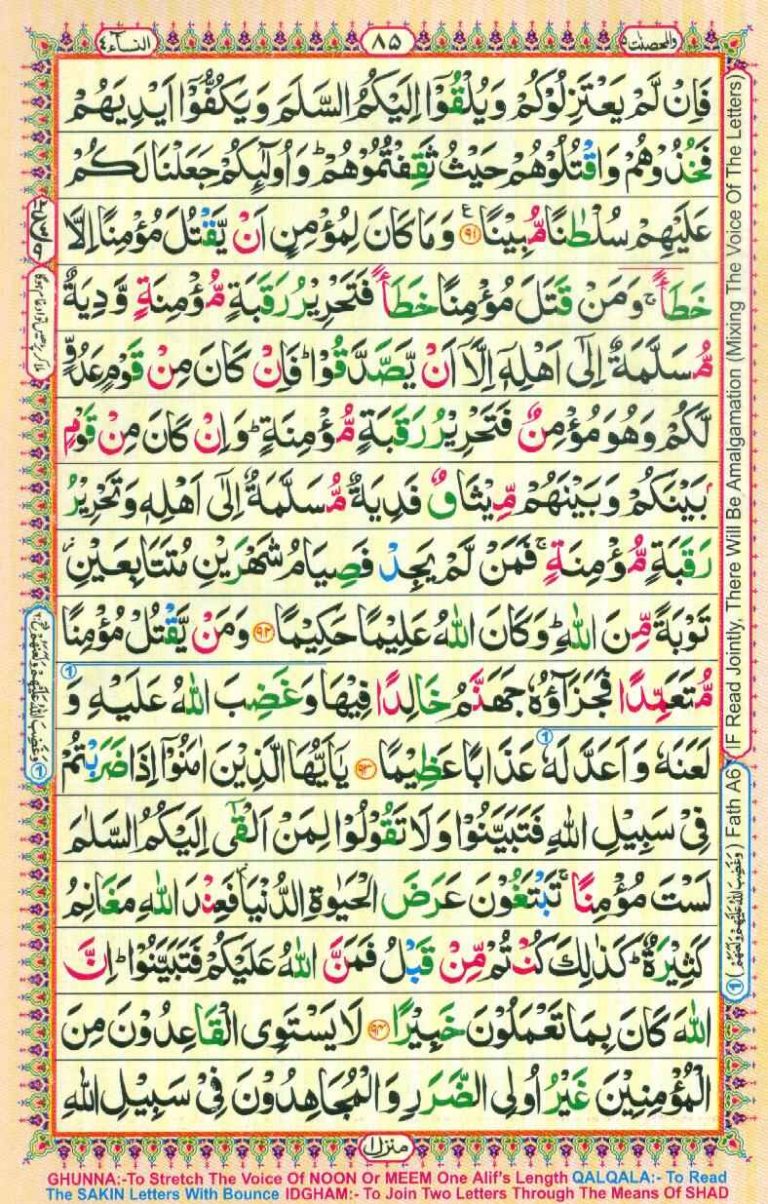 والمحصنت ٥
٨٥
النسآء ٤
فَاِنْ لَّمْ يَعْتَزِلُوْكُمْ وَيُلْقُوْٓا اِلَيْكُمُ السَّلَمَ وَيَكُفُّوْٓا اَيْدِيَهُمْ
فَخُذُوْهُمْ وَاقْتُلُوْهُمْ حَيْثُ ثَقِفْتُمُوْهُمْ ؕ وَاُولٰٓئِكُمْ جَعَلْنَا لَكُمْ
عَلَيْهِمْ سُلْطٰنًا مُّبِيْنًا ﴿۹۱﴾ وَمَا كَانَ لِمُؤْمِنٍ اَنْ يَّقْتُلَ مُؤْمِنًا اِلَّا
خَطَـًٔا ۚ وَمَنْ قَتَلَ مُؤْمِنًا خَطَـًٔا فَتَحْرِيْرُ رَقَبَةٍ مُّؤْمِنَةٍ وَّدِيَةٌ
مُّسَلَّمَةٌ اِلٰٓى اَهْلِهٖٓ اِلَّآ اَنْ يَّصَّدَّقُوْا ؕ فَاِنْ كَانَ مِنْ قَوْمٍ عَدُوٍّ
لَّكُمْ وَهُوَ مُؤْمِنٌ فَتَحْرِيْرُ رَقَبَةٍ مُّؤْمِنَةٍ ؕ وَاِنْ كَانَ مِنْ قَوْمٍۭ
بَيْنَكُمْ وَبَيْنَهُمْ مِّيْثَاقٌ فَدِيَةٌ مُّسَلَّمَةٌ اِلٰٓى اَهْلِهٖ وَتَحْرِيْرُ
رَقَبَةٍ مُّؤْمِنَةٍ ۚ فَمَنْ لَّمْ يَجِدْ فَصِيَامُ شَهْرَيْنِ مُتَتَابِعَيْنِ ؗ
تَوْبَةً مِّنَ اللّٰهِ ؕ وَكَانَ اللّٰهُ عَلِيْمًا حَكِيْمًا ﴿۹۲﴾ وَمَنْ يَّقْتُلْ مُؤْمِنًا
مُّتَعَمِّدًا فَجَزَآؤُهٗ جَهَنَّمُ خَالِدًا فِيْهَا وَغَضِبَ اللّٰهُ عَلَيْهِ وَ
لَعَنَهٗ وَاَعَدَّ لَهٗ عَذَابًا عَظِيْمًا ﴿۹۳﴾ يٰٓاَيُّهَا الَّذِيْنَ اٰمَنُوْٓا اِذَا ضَرَبْتُمْ
فِيْ سَبِيْلِ اللّٰهِ فَتَبَيَّنُوْا وَلَا تَقُوْلُوْا لِمَنْ اَلْقٰٓى اِلَيْكُمُ السَّلٰمَ
لَسْتَ مُؤْمِنًا ۚ تَبْتَغُوْنَ عَرَضَ الْحَيٰوةِ الدُّنْيَا ؗ فَعِنْدَ اللّٰهِ مَغَانِمُ
كَثِيْرَةٌ ؕ كَذٰلِكَ كُنْتُمْ مِّنْ قَبْلُ فَمَنَّ اللّٰهُ عَلَيْكُمْ فَتَبَيَّنُوْا ؕ اِنَّ
اللّٰهَ كَانَ بِمَا تَعْمَلُوْنَ خَبِيْرًا ﴿۹۴﴾ لَا يَسْتَوِى الْقَاعِدُوْنَ مِنَ
الْمُؤْمِنِيْنَ غَيْرُ اُولِى الضَّرَرِ وَالْمُجَاهِدُوْنَ فِيْ سَبِيْلِ اللّٰهِ
منزل ١
IF Read Jointly, There Will Be Amalgamation (Mixing The Voice Of The Letters)
(وَغَضِبَ اللّٰهُ عَلَيْهِمْ وَلَعَنَهُمْ) Fath A6
GHUNNA:-To Stretch The Voice Of NOON Or MEEM One Alif's Length QALQALA:- To Read
The SAKIN Letters With Bounce IDGHAM:- To Join Two Letters Through The Means Of SHAD